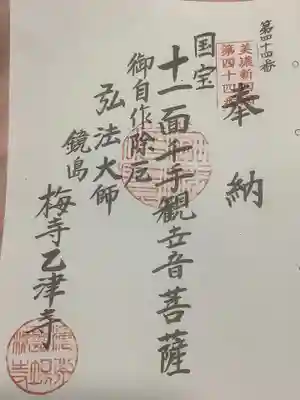 第四十四番
美濃新
第四十四
奉納
国宝
十一面千手観世音菩薩
御自作除厄
弘法大師
鏡島
梅寺乙津寺